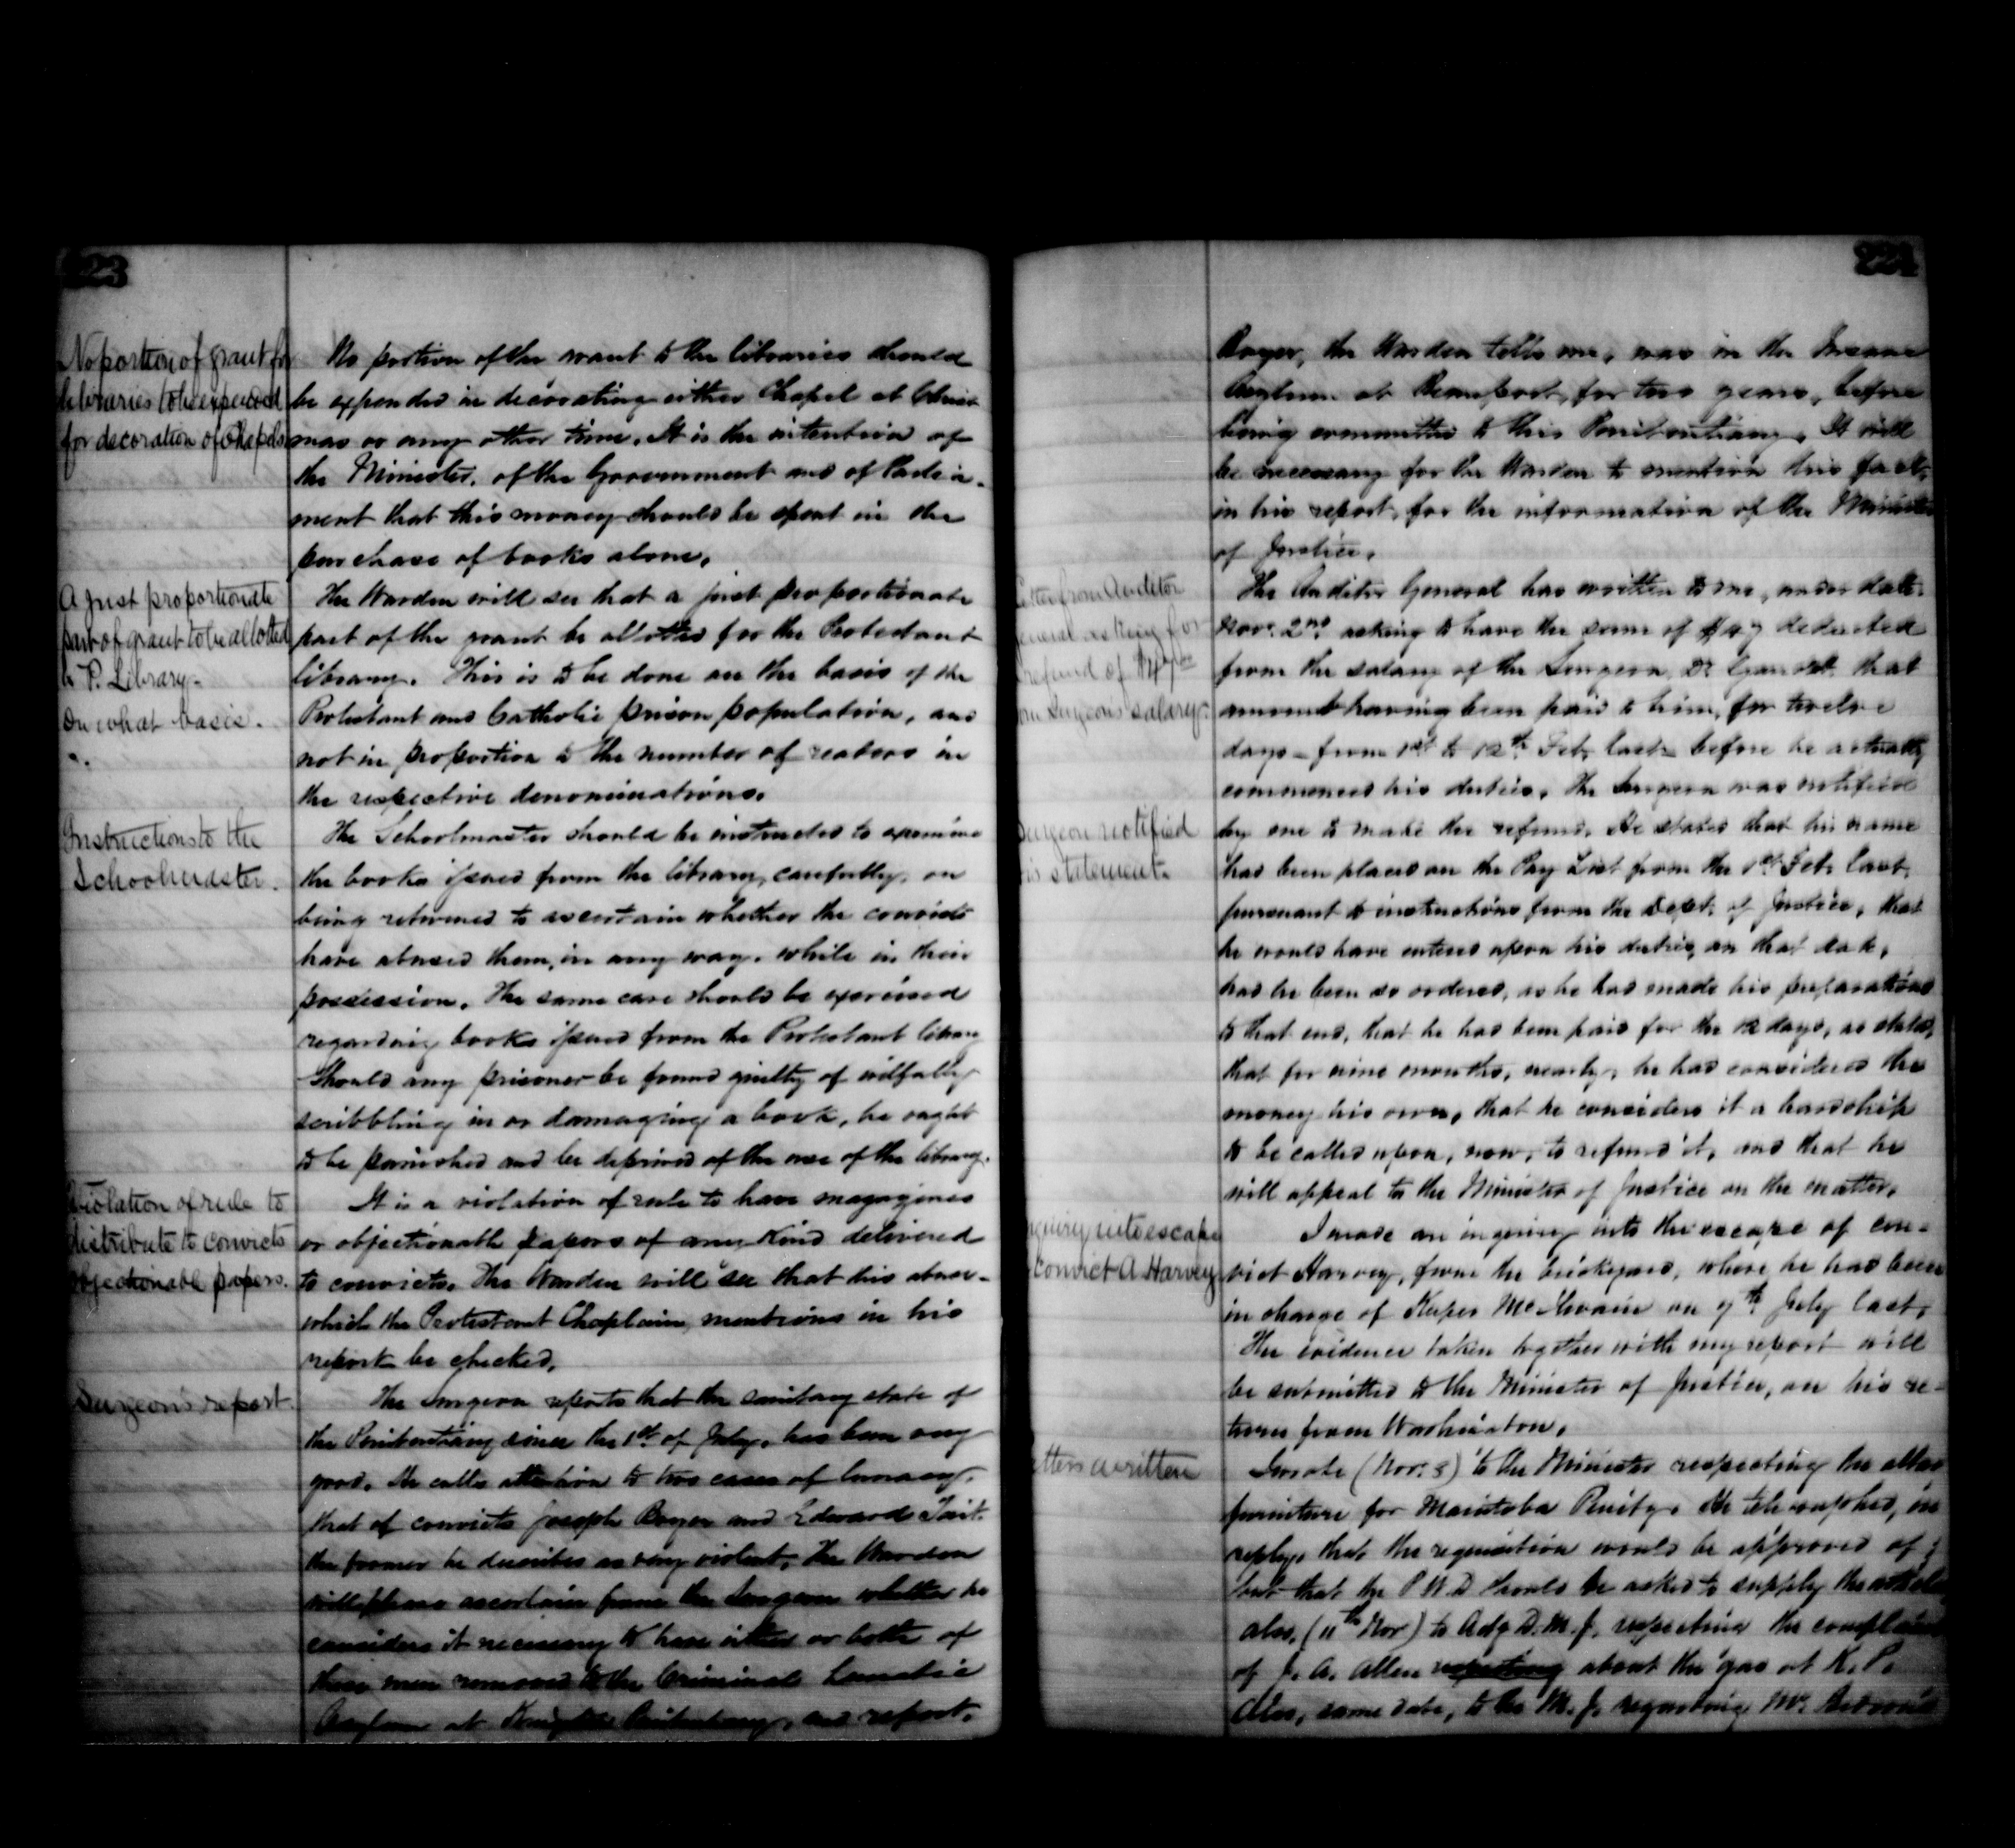 223
No portion of grant for
libraries to be expended
for decoration of Chapels
No portion of the grant to the libraries should
be expended in decorating either Chapel at Christ-
mas or any other time. It is the intention of
the Minister, of the Government and of Parlia-
ment that this money should be spent in the
purchase of books alone.
A just proportionate
part of grant to be allotted
to P. Library.
On what basis.
The Warden will see that a just proportionate
part of the grant be allotted for the Protestant
library. This is to be done on the basis of the
Protestant and Catholic prison population, and
not in proportion to the number of readers in
the respective denominations.
Instructions to the
Schoolmaster.
The Schoolmaster should be instructed to examine
the books issued from the library, carefully, on
being returned to ascertain whether the convicts
have abused them, in any way, while in their
possession. The same care should be exercised
regarding books issued from the Protestant library
Should any prisoner be found guilty of wilfully
scribbling in or damaging a book, he ought
to be punished and be deprived of the use of the library.
Violation of rule to
distribute to convicts
objectionable papers.
It is a violation of rule to have magazines
or objectionable papers of any kind delivered
to convicts. The Warden will see that this abuse,
which the Protestant Chaplain mentions in his
report be checked.
Surgeon's report
The Surgeon reports that the sanitary state of
the Penitentiary since the 1st of July, has been very
good. He calls attention to two cases of lunacy,
that of convicts Joseph Boyer and Edward Tait.
the former he describes as very violent. The Warden
will please ascertain from the Surgeon whether he
considers it necessary to have either or both of
these men removed to the Criminal Lunatic
Asylum at Kingston Penitentiary, and report.
224
Boyer, the Warden tells me, was in the Insane
Asylum at Beauport, for two years, before
being committed to this Penitentiary. It will
be necessary for the Warden to mention this fact,
in his report, for the information of the Minister
of Justice.
Letter from Auditor
General asking for
refund of $47.00
from Surgeon's salary.
The Auditor General has written to me, under date
Nov. 2nd asking to have the sum of $47 deducted
from the salary of the Surgeon, Dr. that
amount having been paid to him, for twelve
days – from 1st to 12th Feb. last – before he actually
commenced his duties. The Surgeon was notified
Surgeon notified
his statement.
by me to make the refund. He states that his name
has been placed on the Pay List from the 1st Feb. last,
pursuant to instructions from the Dept. of Justice, that
he would have entered upon his duties, on that date,
had he been so ordered, as he had made his preparations
to that end, that he has been paid for the 12 days, as stated,
that for nine months, nearly, he has considered the
money his own, that he considers it a hardship
to be called upon, now, to refund it, and that he
will appeal to the Minister of Justice on the matter.
Inquiry into escape
Convict A Harvey
I made an inquiry into the escape of con-
vict Harvey, from the brickyard, where he had been
in charge of Keeper McIlwain on 7th July last.
The evidence taken together with my report will
be submitted to the Minister of Justice, on his re-
turn from Washington.
Letters written
I wrote (Nov. 8) to the Minister respecting the altar
furniture for Manitoba Penity. He telegraphed, in
reply, that the requisition would be approved of;
but that the P.W.D should be asked to supply the
also, (11th Nov) to Actg D.M.J. respecting the complaint
of J. A. Allen respecting about the gas at K.P.
Also, same date, to the M.J. regarding Mr.